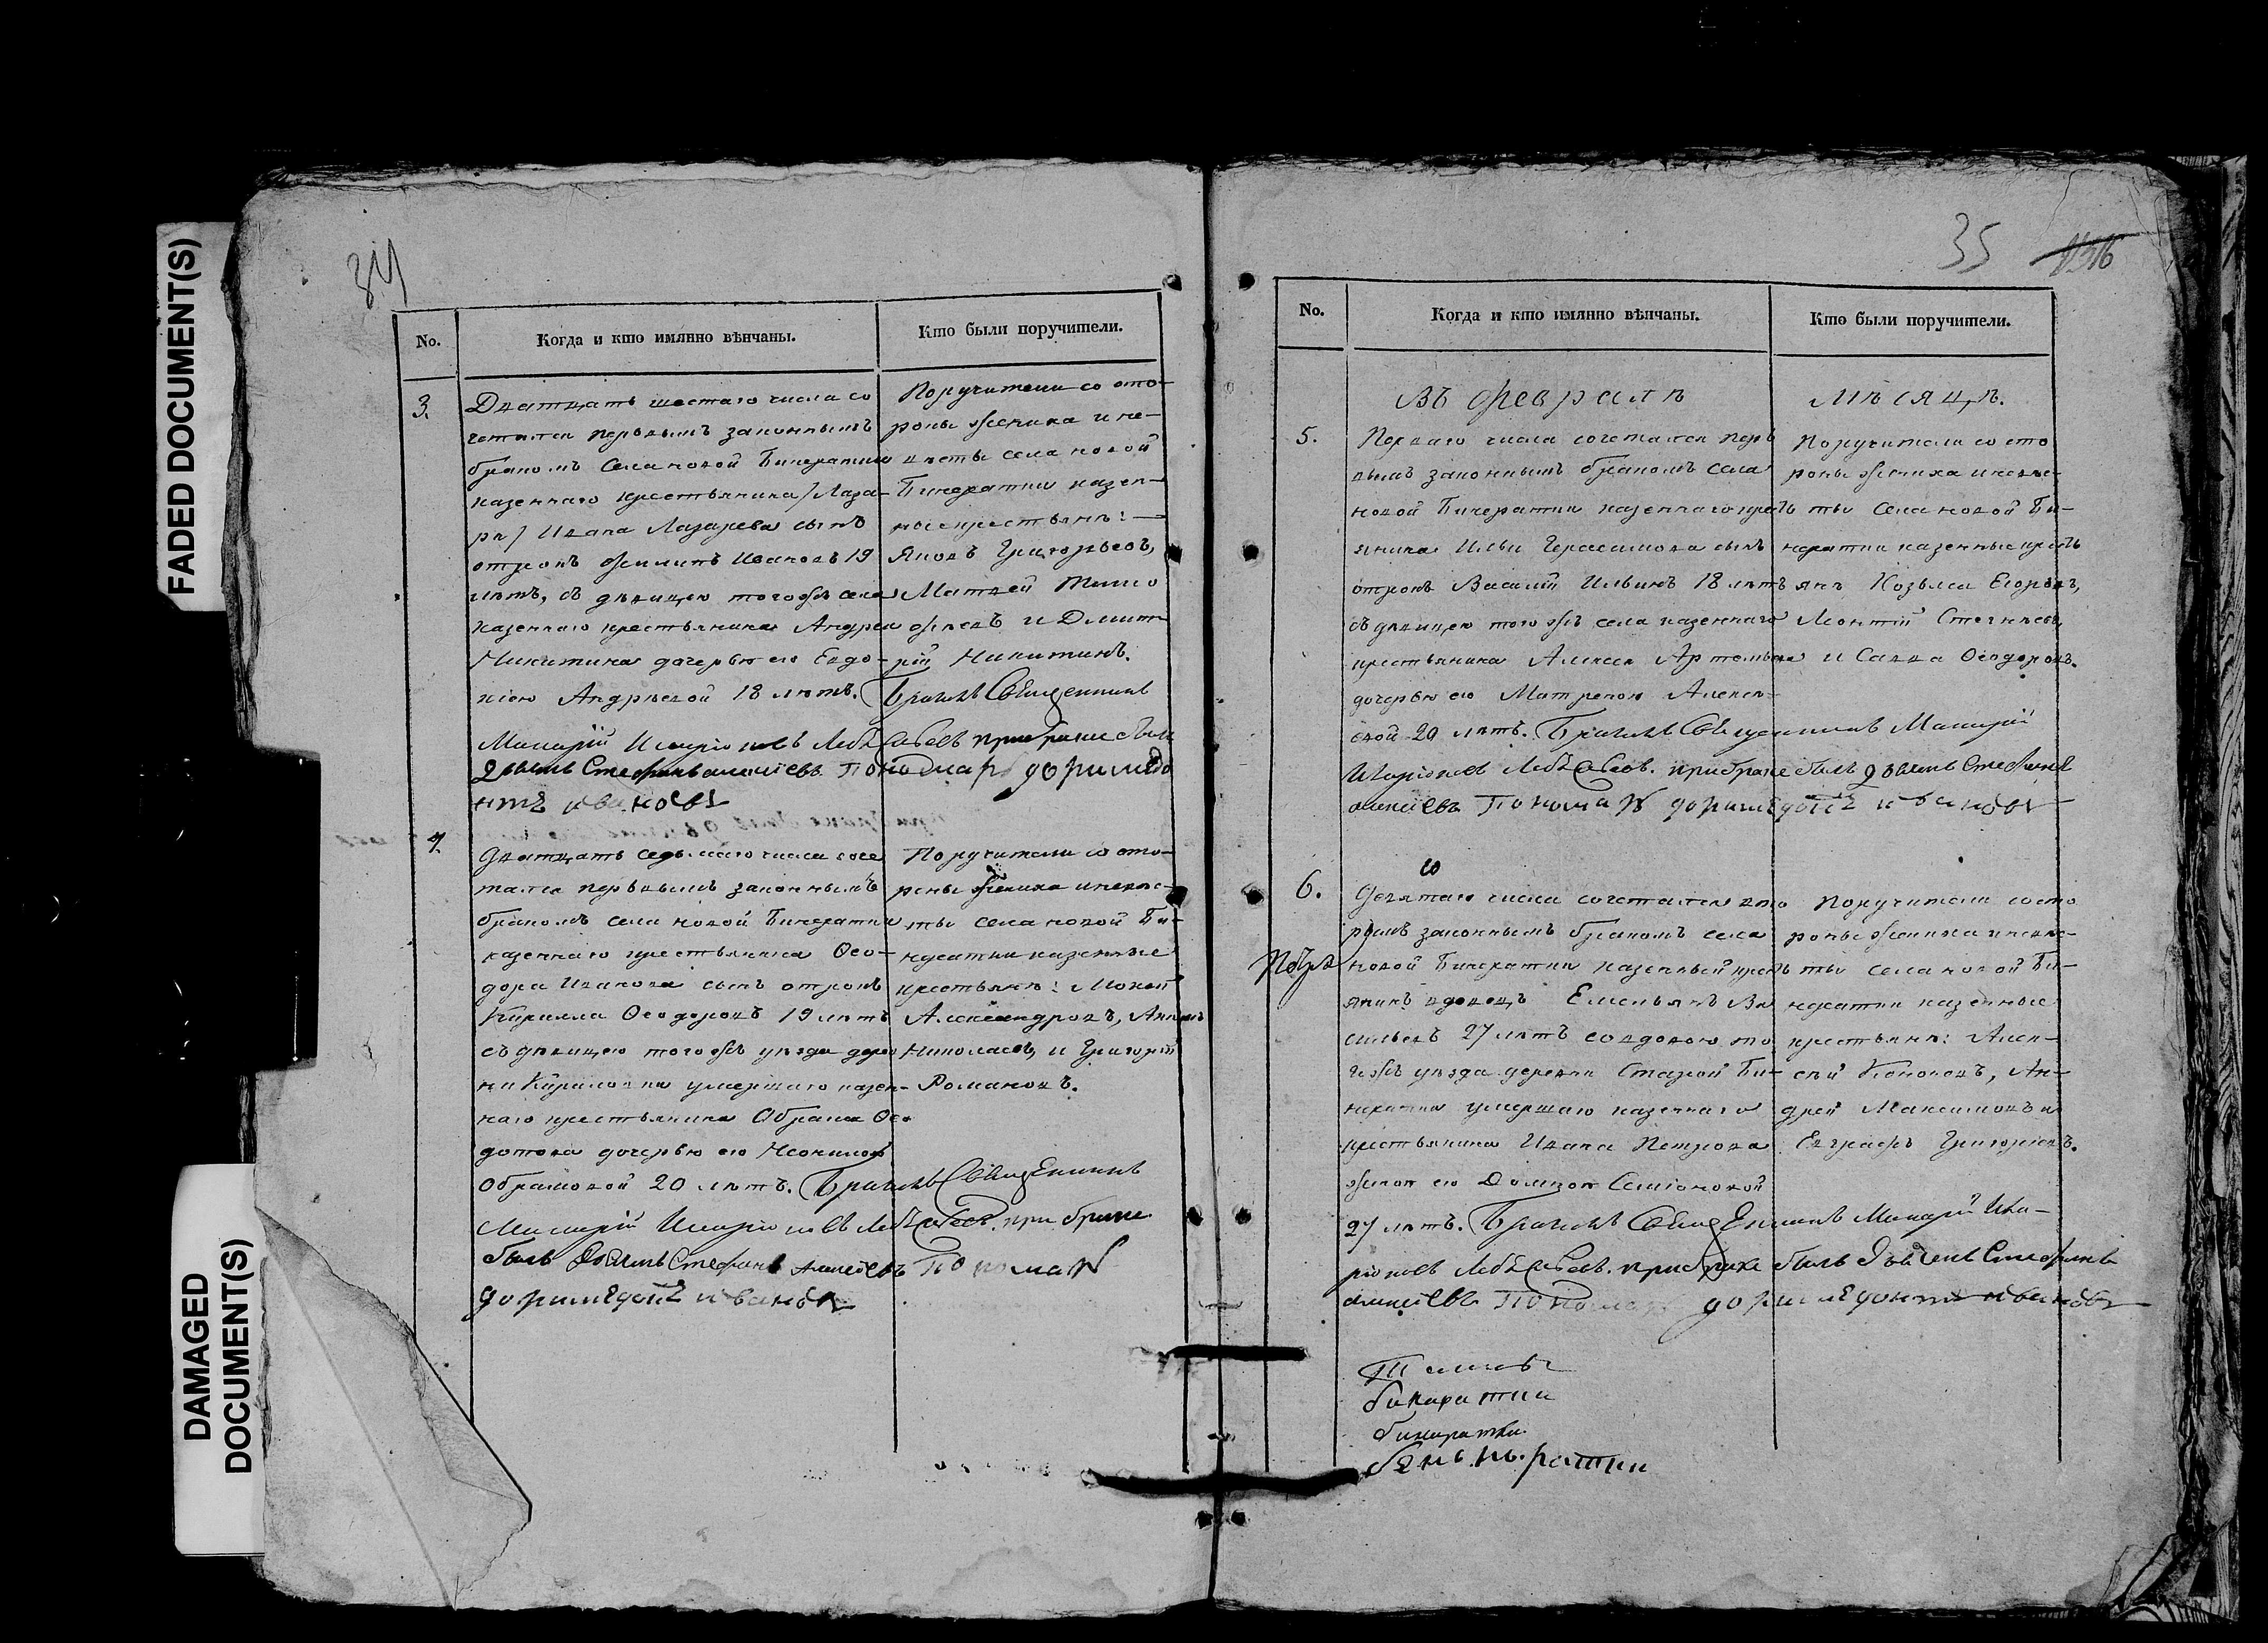 FADED DOCUMENT(S)
DAMAGED
DOCUMENT(S)
34
No.
Когда и кто имянно вѣнчаны.
Кто были поручители.
3.
Дватцать шестаго числа со
четался первымъ законнымъ
бракомъ села новой Бинератки
казеннаго крестьянина /Лаза-
ря/ Ивана Лазарева сынъ
отрокъ Филипъ Ивановъ 19
лѣтъ, съ дѣвицею того жъ села
казеннаго крестьянина Андрея
Никитина дочерью его Евдо-
кіею Андрѣевой 18 лѣтъ. Бракъ Священникъ
Макарій Иларіоновъ при бракѣ были
дьячекъ Стефанъ Алексіевъ Пономар доримедо
нтъ ивановъ
Поручители со сто-
роны жениха и не-
вѣсты села новой
Бинератки казен-
ные крестьянѣ:
Яковъ Григорьевъ,
Матвей Тимо
фѣевъ и Дмит-
рій Никитинъ.
4.
Дватцать седьмаго числа соче
тался первымъ законнымъ
бракомъ села новой Бинератки
казеннаго крестьянина Ѳео-
дора Иванова сынъ отрокъ
Кирилла Ѳеодоровъ 19 лѣтъ
съ дѣвицею того жъ уѣзда дерев
ни Кириловки умершаго казен-
наго крестьянина Обрама Ѳео
дотова дочерью его Неонилой
Обрамовой 20 лѣтъ. Бракъ Священникъ
Макарій Иларіоновъ при бракѣ
былъ Дьячекъ Стефанъ Алексіевъ Пономар
доримедонтъ ивановъ
Поручители со сто-
роны жениха и невѣс-
ты села новой Би-
нератки казенные
крестьянѣ: Мокей
Александровъ,
Николаевъ, и Григорій
Романовъ.
35
No.
Когда и кто имянно вѣнчаны.
Кто были поручители.
Въ февралѣ
мѣсяцѣ.
5.
Перваго числа сочетался пер
вымъ законнымъ бракомъ села
новой Бинератки казеннаго крестъ
янина Ильи Герасимова сынъ
отрокъ Василій Ильинъ 18 лѣтъ
съ дѣвицею того жъ села казеннаго
крестьянина Алексея Артемьева
дочерью его Матреною Алексѣ-
евой 20 лѣтъ. Бракъ Священникъ Макарій
Иларіоновъ при бракѣ былъ дьячекъ Стефанъ
алексіевъ Пономар доримедонтъ ивановъ
Поручители со сто
роны жениха и невѣс-
ты села новой Би-
нератки казенные крестъ
янѣ Козьма Егоровъ,
Леонтій
и Савва Ѳеодоровъ.
6.
Девятаго числа сочетался вто
рымъ законнымъ бракомъ села
новой Бинератки казенный кресть
янинъ вдовецъ Емельянъ Ва
сильевъ 27 лѣтъ со вдовою то
гожъ уѣзда деревни Старой Би-
нератки умершаго казеннаго
крестьянина Ивана Петрова
женою его Домною Семіоновой
27 лѣтъ. Бракъ Священникъ Макарій Ила-
ріоновъ при бракѣ былъ Дьячекъ Стефанъ
алексіевъ Пономар доримедонтъ ивановъ
Поручители со сто
роны жениха и невѣс-
ты села новой Би-
нератки казенные
крестьянѣ: Алек-
сѣй Кононовъ, Ан-
дрей Максимовъ и
Евграфъ Григорьевъ.